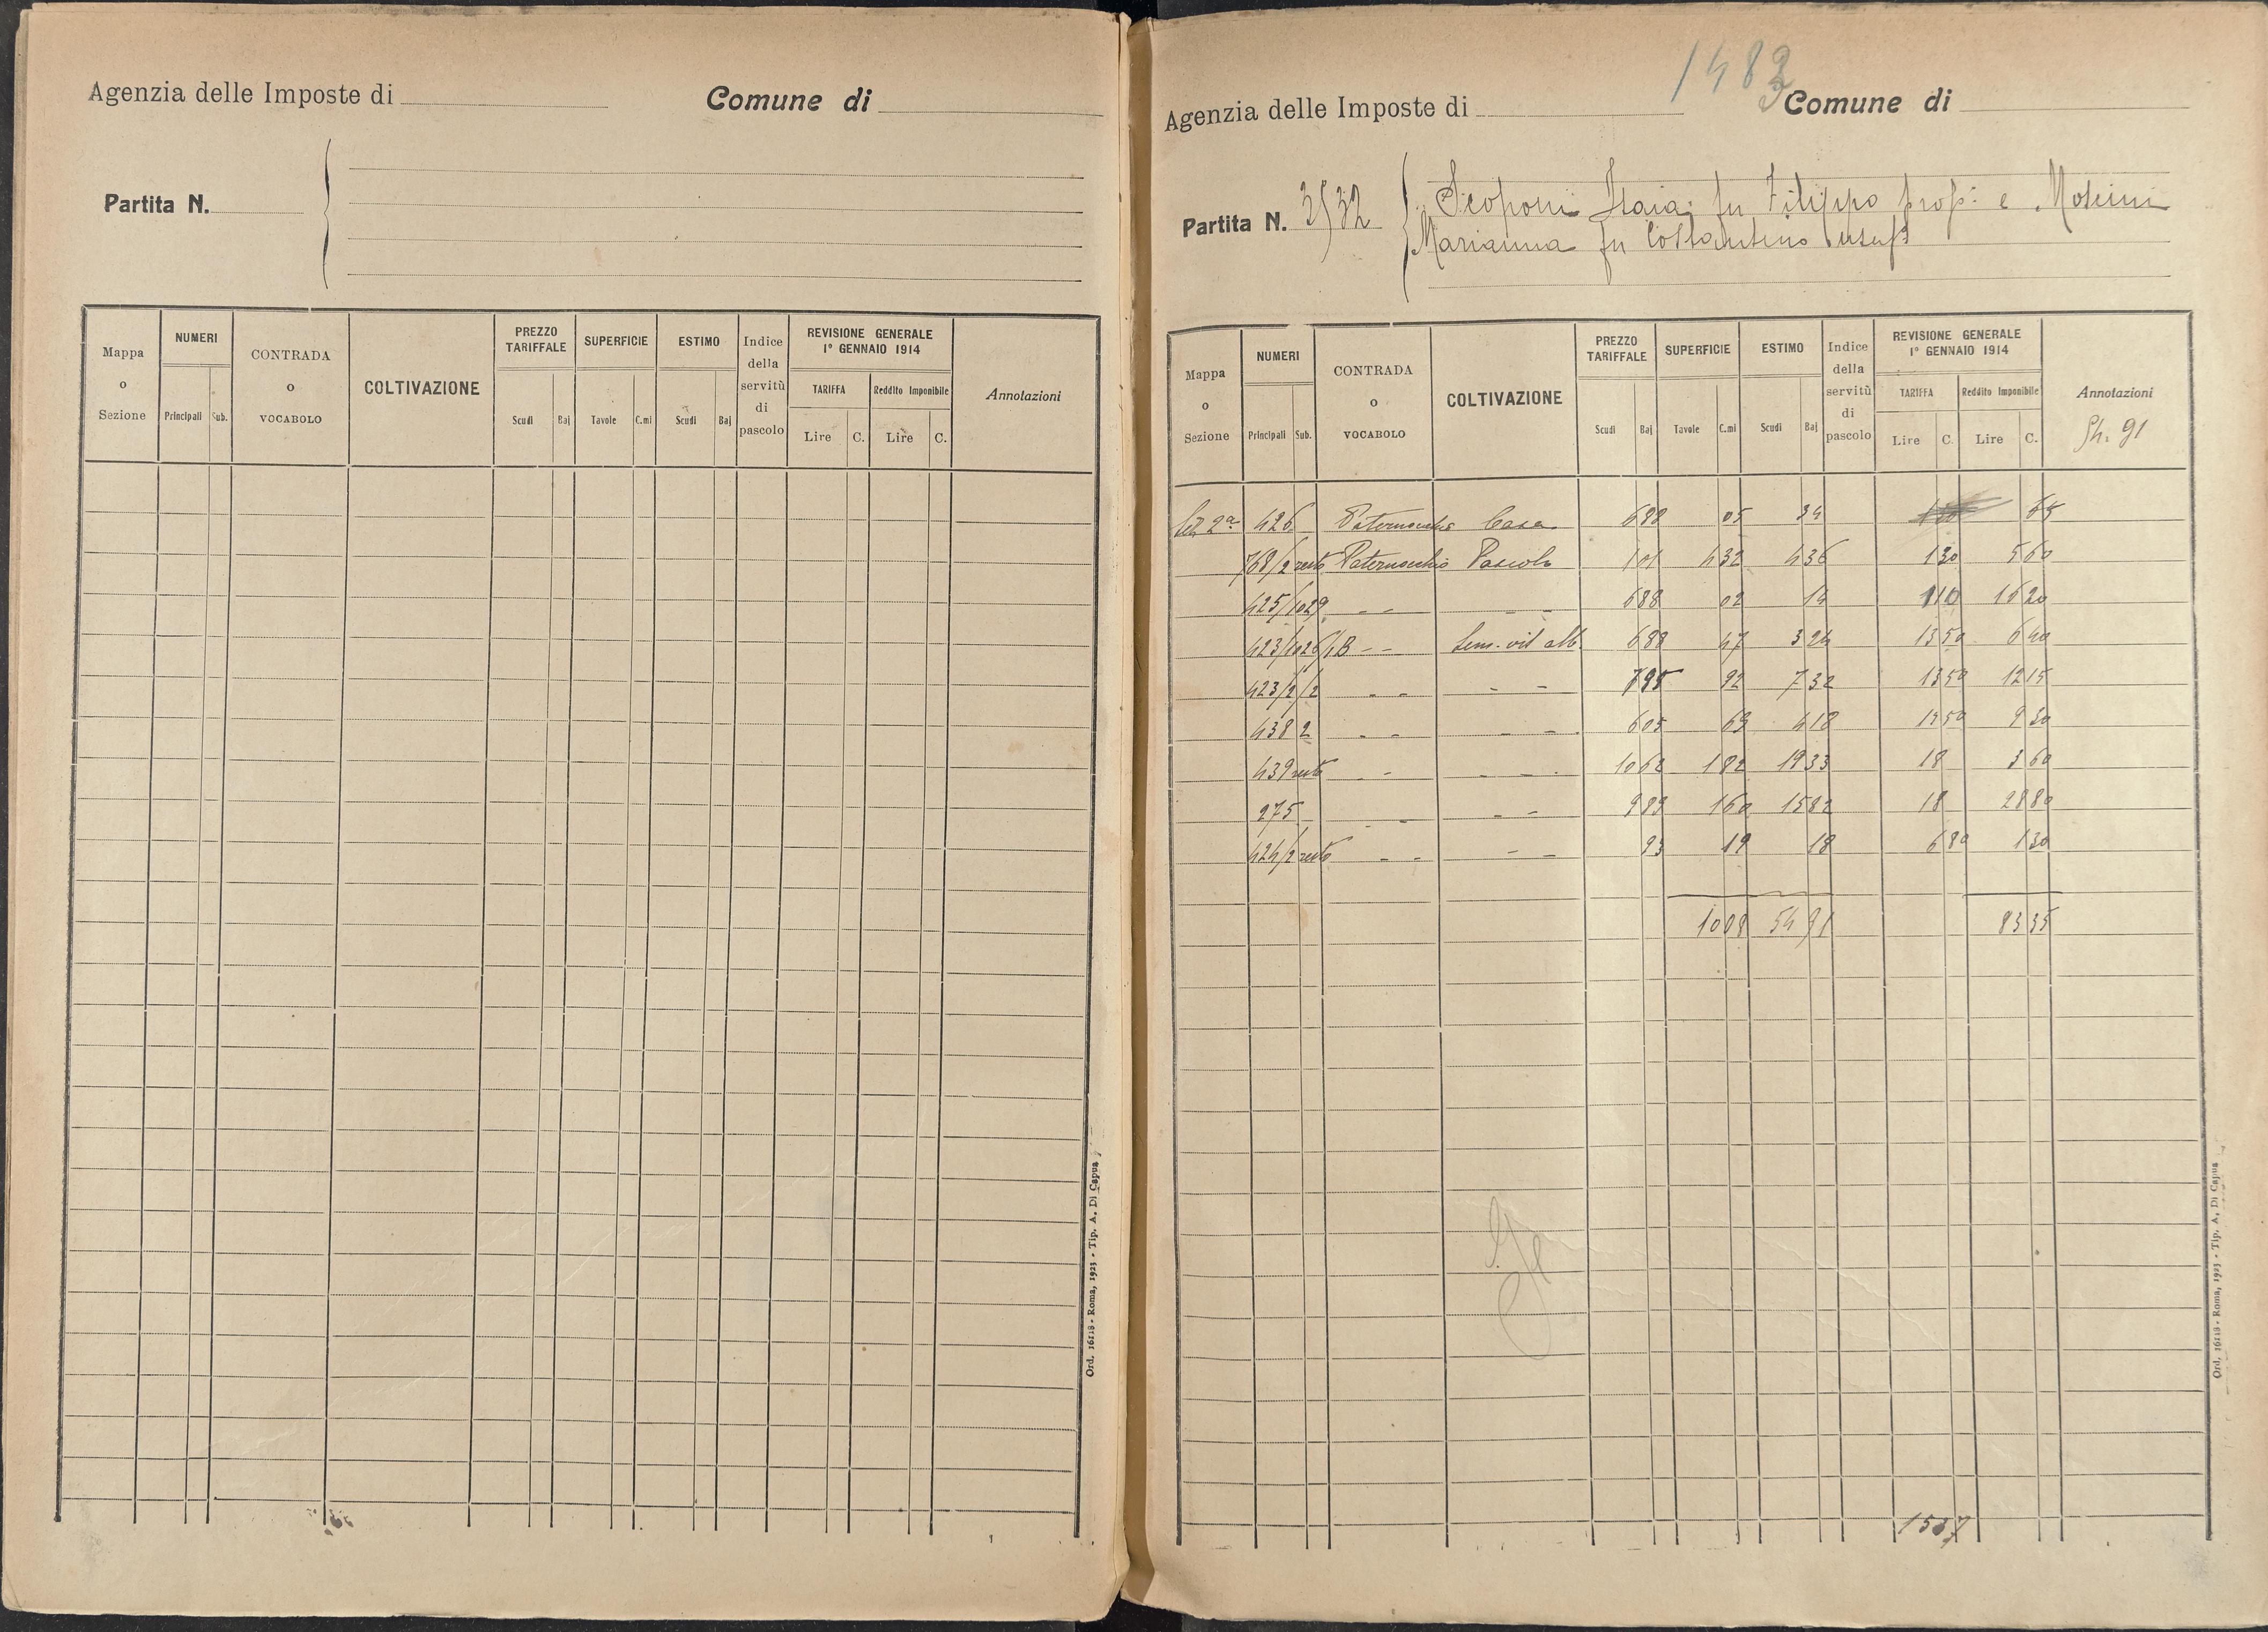 Agenzia delle Imposte di
Comune di
Partita N.
Mappa o Sezione
NUMERI
Principali Sub.
CONTRADA o VOCABOLO
COLTIVAZIONE
PREZZO TARIFFALE
Scudi Baj
SUPERFICIE
Tavole C.mi
ESTIMO
Scudi Baj
Indice della servitù di pascolo
REVISIONE GENERALE
1° GENNAIO 1914
TARIFFA Reddito Imponibile
Lire C. Lire C.
Annotazioni
Ord. 16118 - Roma, 1923 - Tip. A. Di Capua
1483
Agenzia delle Imposte di
Comune di
Partita N. 3532
Scoponi Isaia fu Filippo prop: e Moscini
Marianna fu Costantino usuf
Mappa o Sezione
NUMERI
Principali Sub.
CONTRADA o VOCABOLO
COLTIVAZIONE
PREZZO TARIFFALE
Scudi Baj
SUPERFICIE
Tavole C.mi
ESTIMO
Scudi Baj
Indice della servitù di pascolo
REVISIONE GENERALE
1° GENNAIO 1914
TARIFFA Reddito Imponibile
Lire C. Lire C.
Annotazioni
91
2a 426 Paternocchio Casa 688 05 34 65
768/2 resto Paternocchio Pascolo 101 432 436 1 30 5 60
425/1029 - - - - 688 02 14 110 16 20
423/1026/1B - - Sem. vit alb. 688 47 3 24 13 50 6 40
423/2/2 - - - - 795 92 7 32 13 50 12 15
438 2 - - - - 605 69 4 18 13 50 9 30
439 resto - - - - 1062 182 19 33 18 3 60
275 - - - - 989 160 15 82 18 28 80
424/2 resto - - - - 93 19 18 6 80 1 30
1008 54 91 83 35
1507
Ord. 16118 - Roma, 1923 - Tip. A. Di Capua